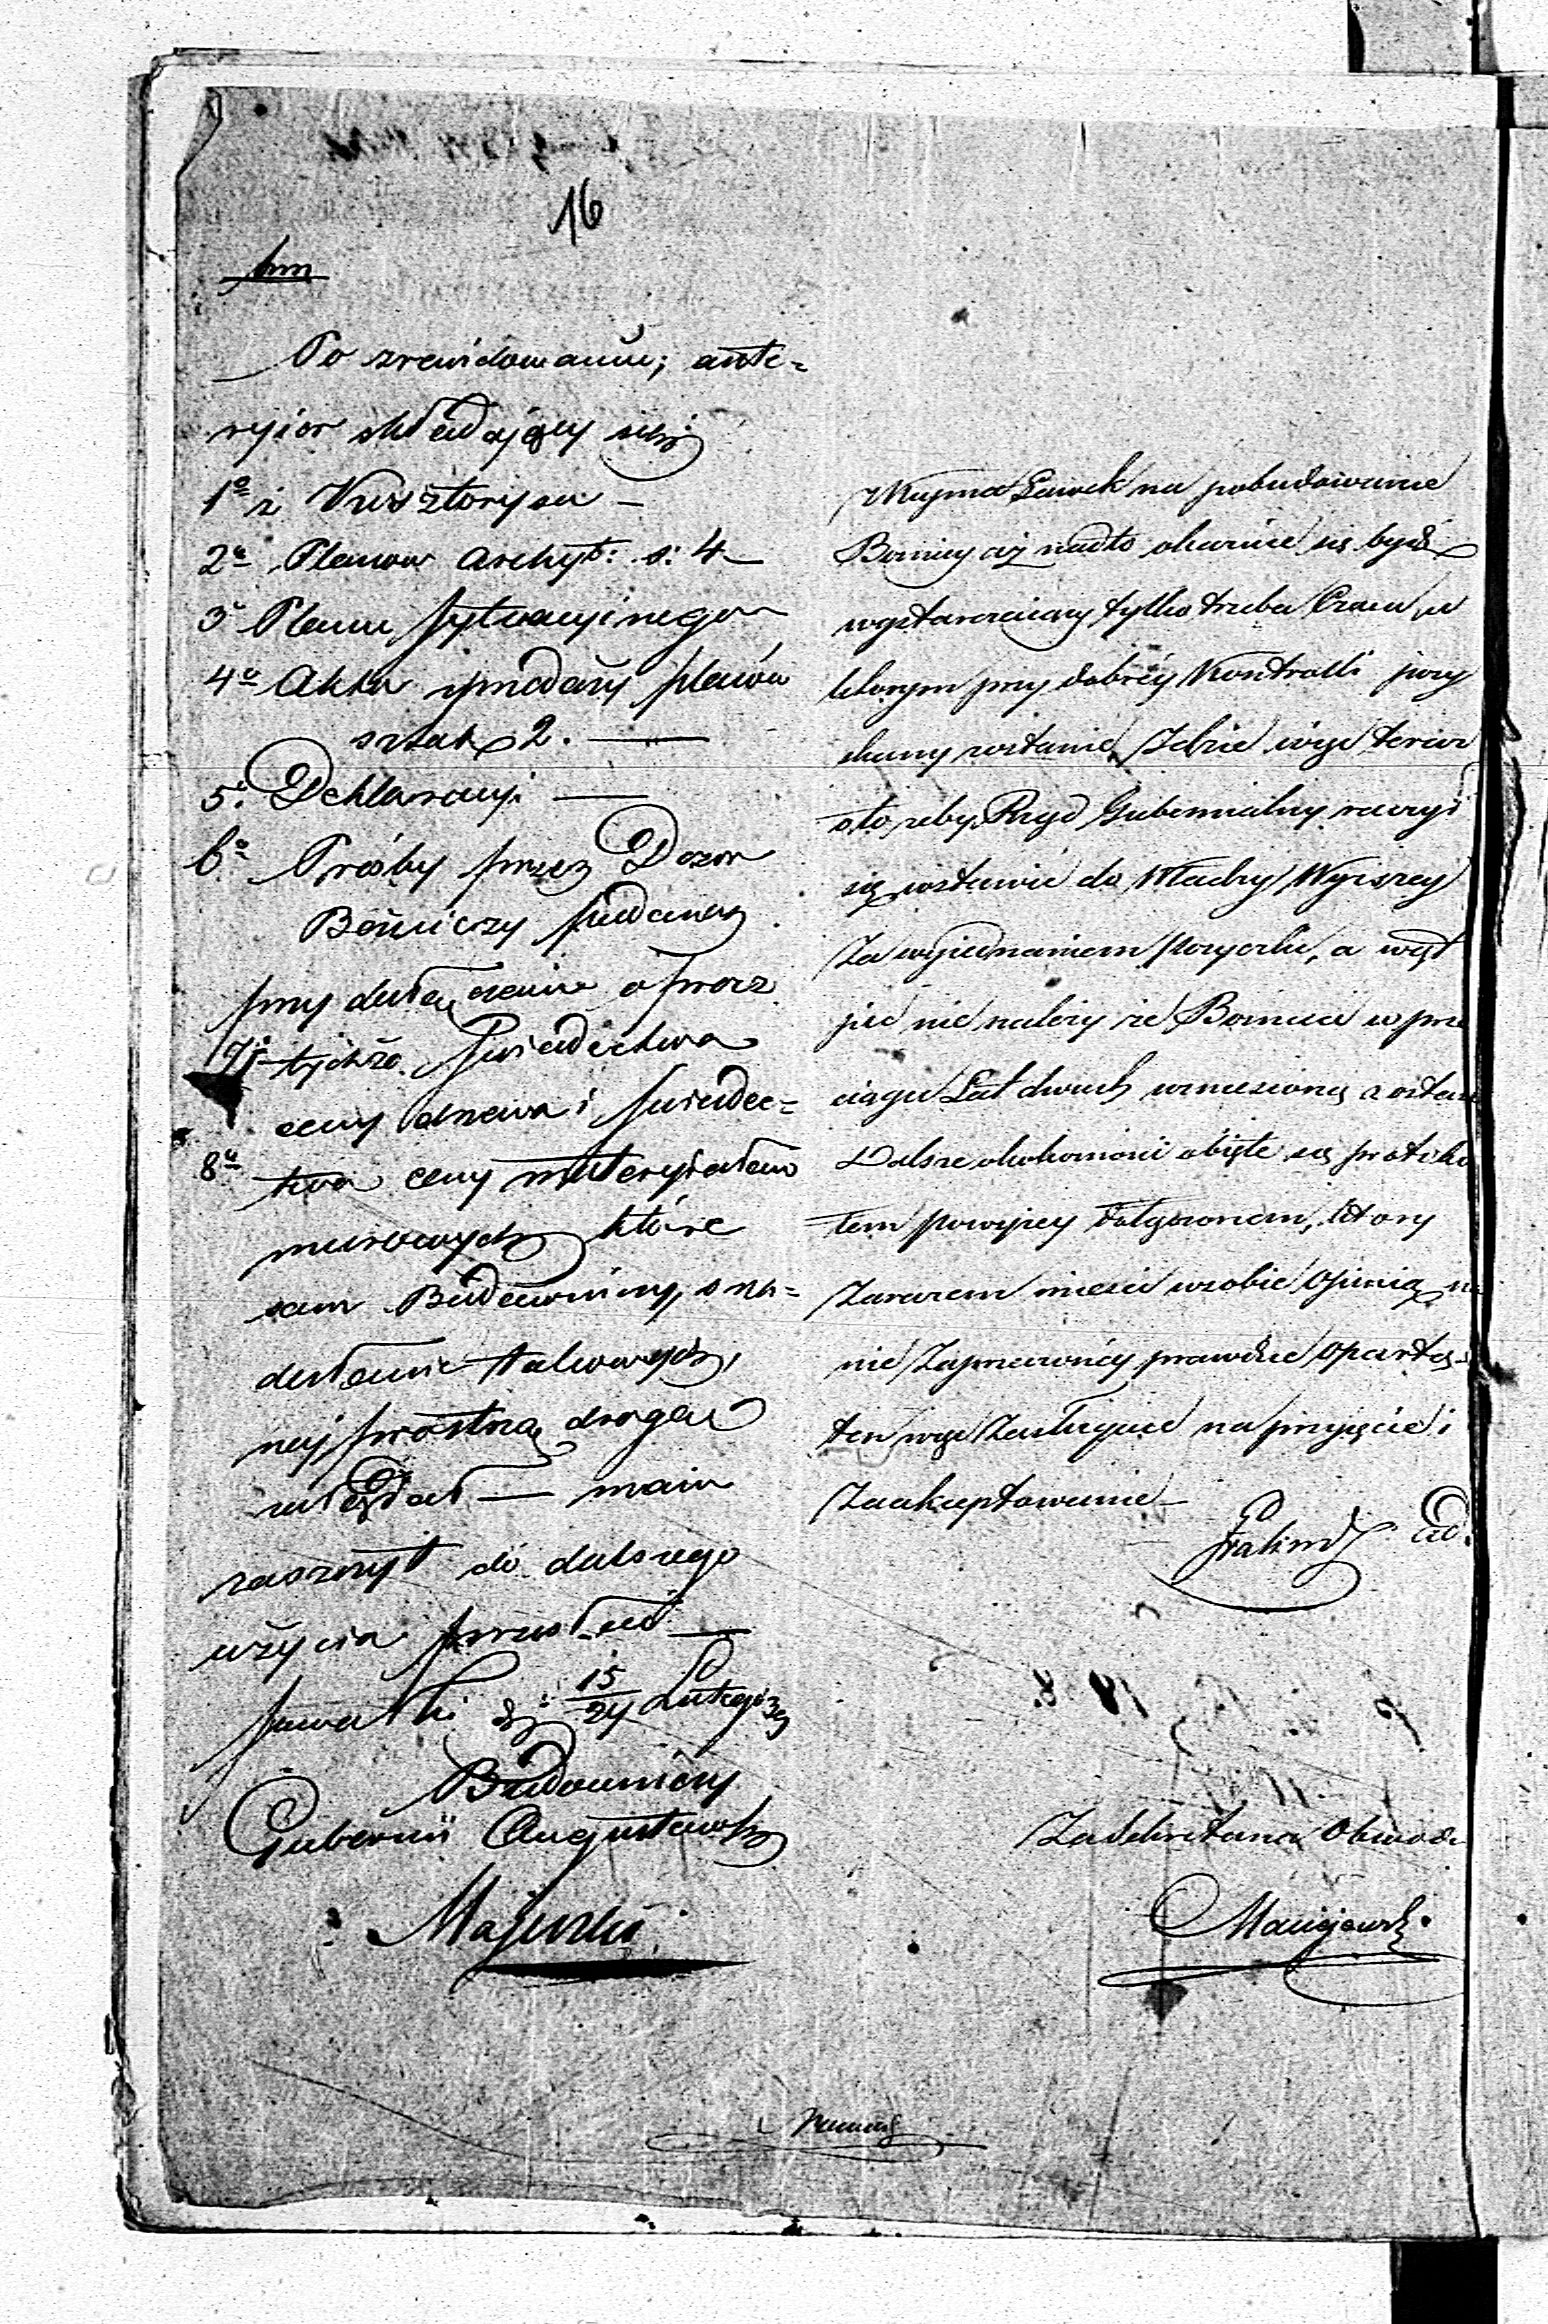 16
Po zrewidowaniu; ante-
ryjor składający się
1º z Kusztorysu —
2º Planow Archyt: s: 4 —
3º Planu sytuacyinego
4º Akta sprzedaży placów
sztuk 2. —
5º Deklaracyi —
6º Prośby przez Dozor
Bożniczy podaney
przy dołączeniu oprocz
7º tychże Swiadectwa
ceny drzewa i swiadec=
8º twa ceny materyiałów
murowych które
sam Budowniczy, o na=
desłanie takowych,
najprostszą drogą
zażądał — mam
zaszczyt do dalszego
użycia przesłać —
Suwałki d: 15/24 Lutego
Budowniczy
Gubernii Augustowsk
Majewski
Kupna Ławek na pobudowanie
Bożnicy aż nadto okaże się bydź
wystarczaiący tylko trzeba Czasu, w
którym przy dobréy Kontrolli pozy
skany zostanie, Idzie więc teraz
oto, żeby Rząd Gubernialny raczył
się wstawić do Władzy Wyższey
Za wyiednaniem pożyczki, a wąt
pić nie należy że Bożnica w prze
ciągu Lat dwuch wzniesioną zostan
Dalsze okoliczności obięte są protoko
łem powyżey dołączonem, który
Zarazem mieści w sobie Opinią na
nie Zaprzeczoney prawdzie opartą
ten więc Zasługuie na przyięcie i
Zaakceptowanie —
Za Sekretarza Obwodu
Maciejewski